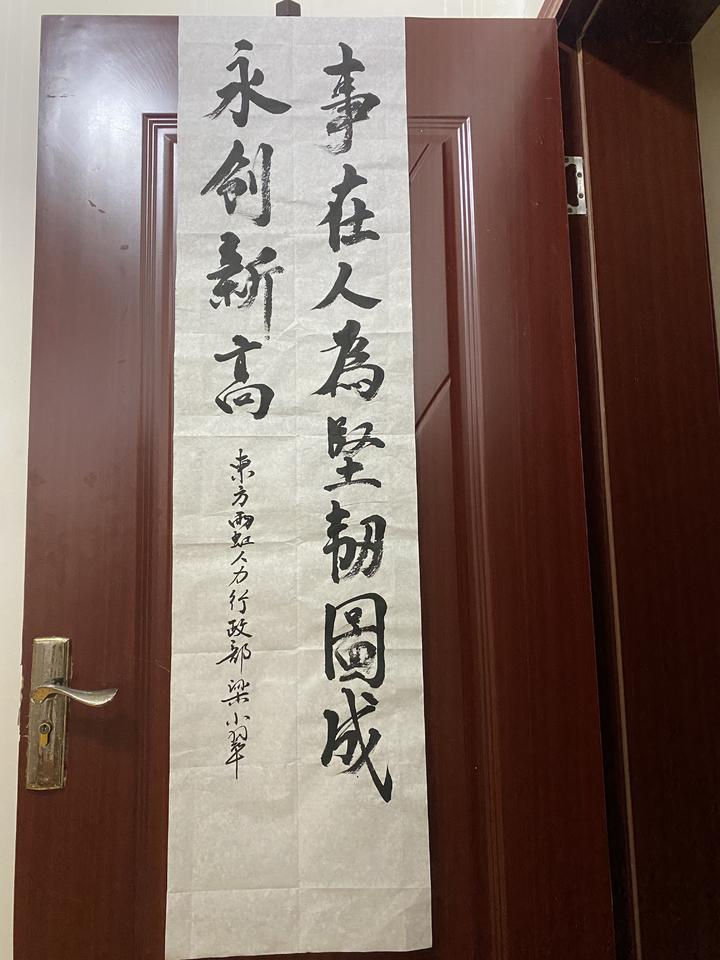 事在人為堅韌圖成
永创新高
東方雨虹人力行政部 梁小翠